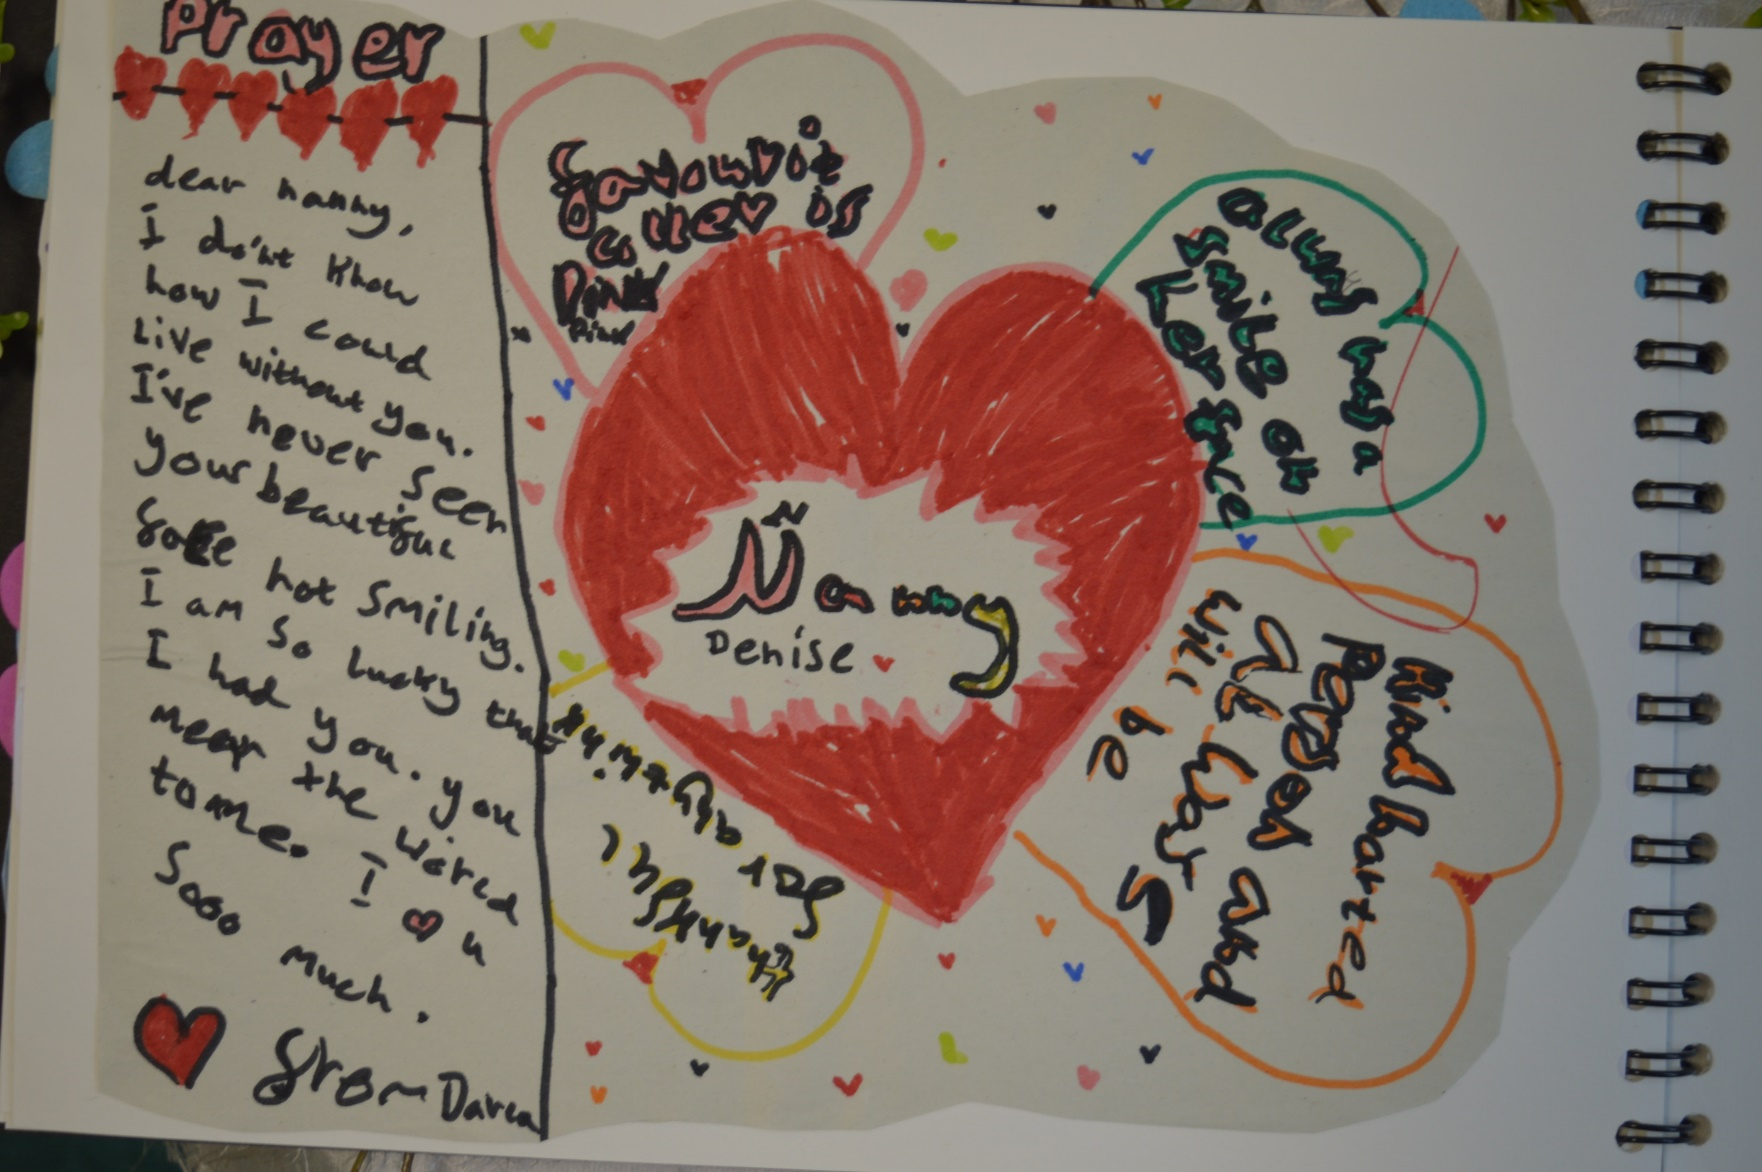 Prayer
dear nanny,
I do'nt know
how I could
Live without you.
I've never seen
your beautiful
face not smiling.
I am so lucky that
I had you. you
mean the wored
to me. I u
Sooo
much.
from Darca
favourite
coller is
Pink
Pink
Nanny
Denise
always has a
smile on
her face
Kind harted
person and
will be
for everything
thankful